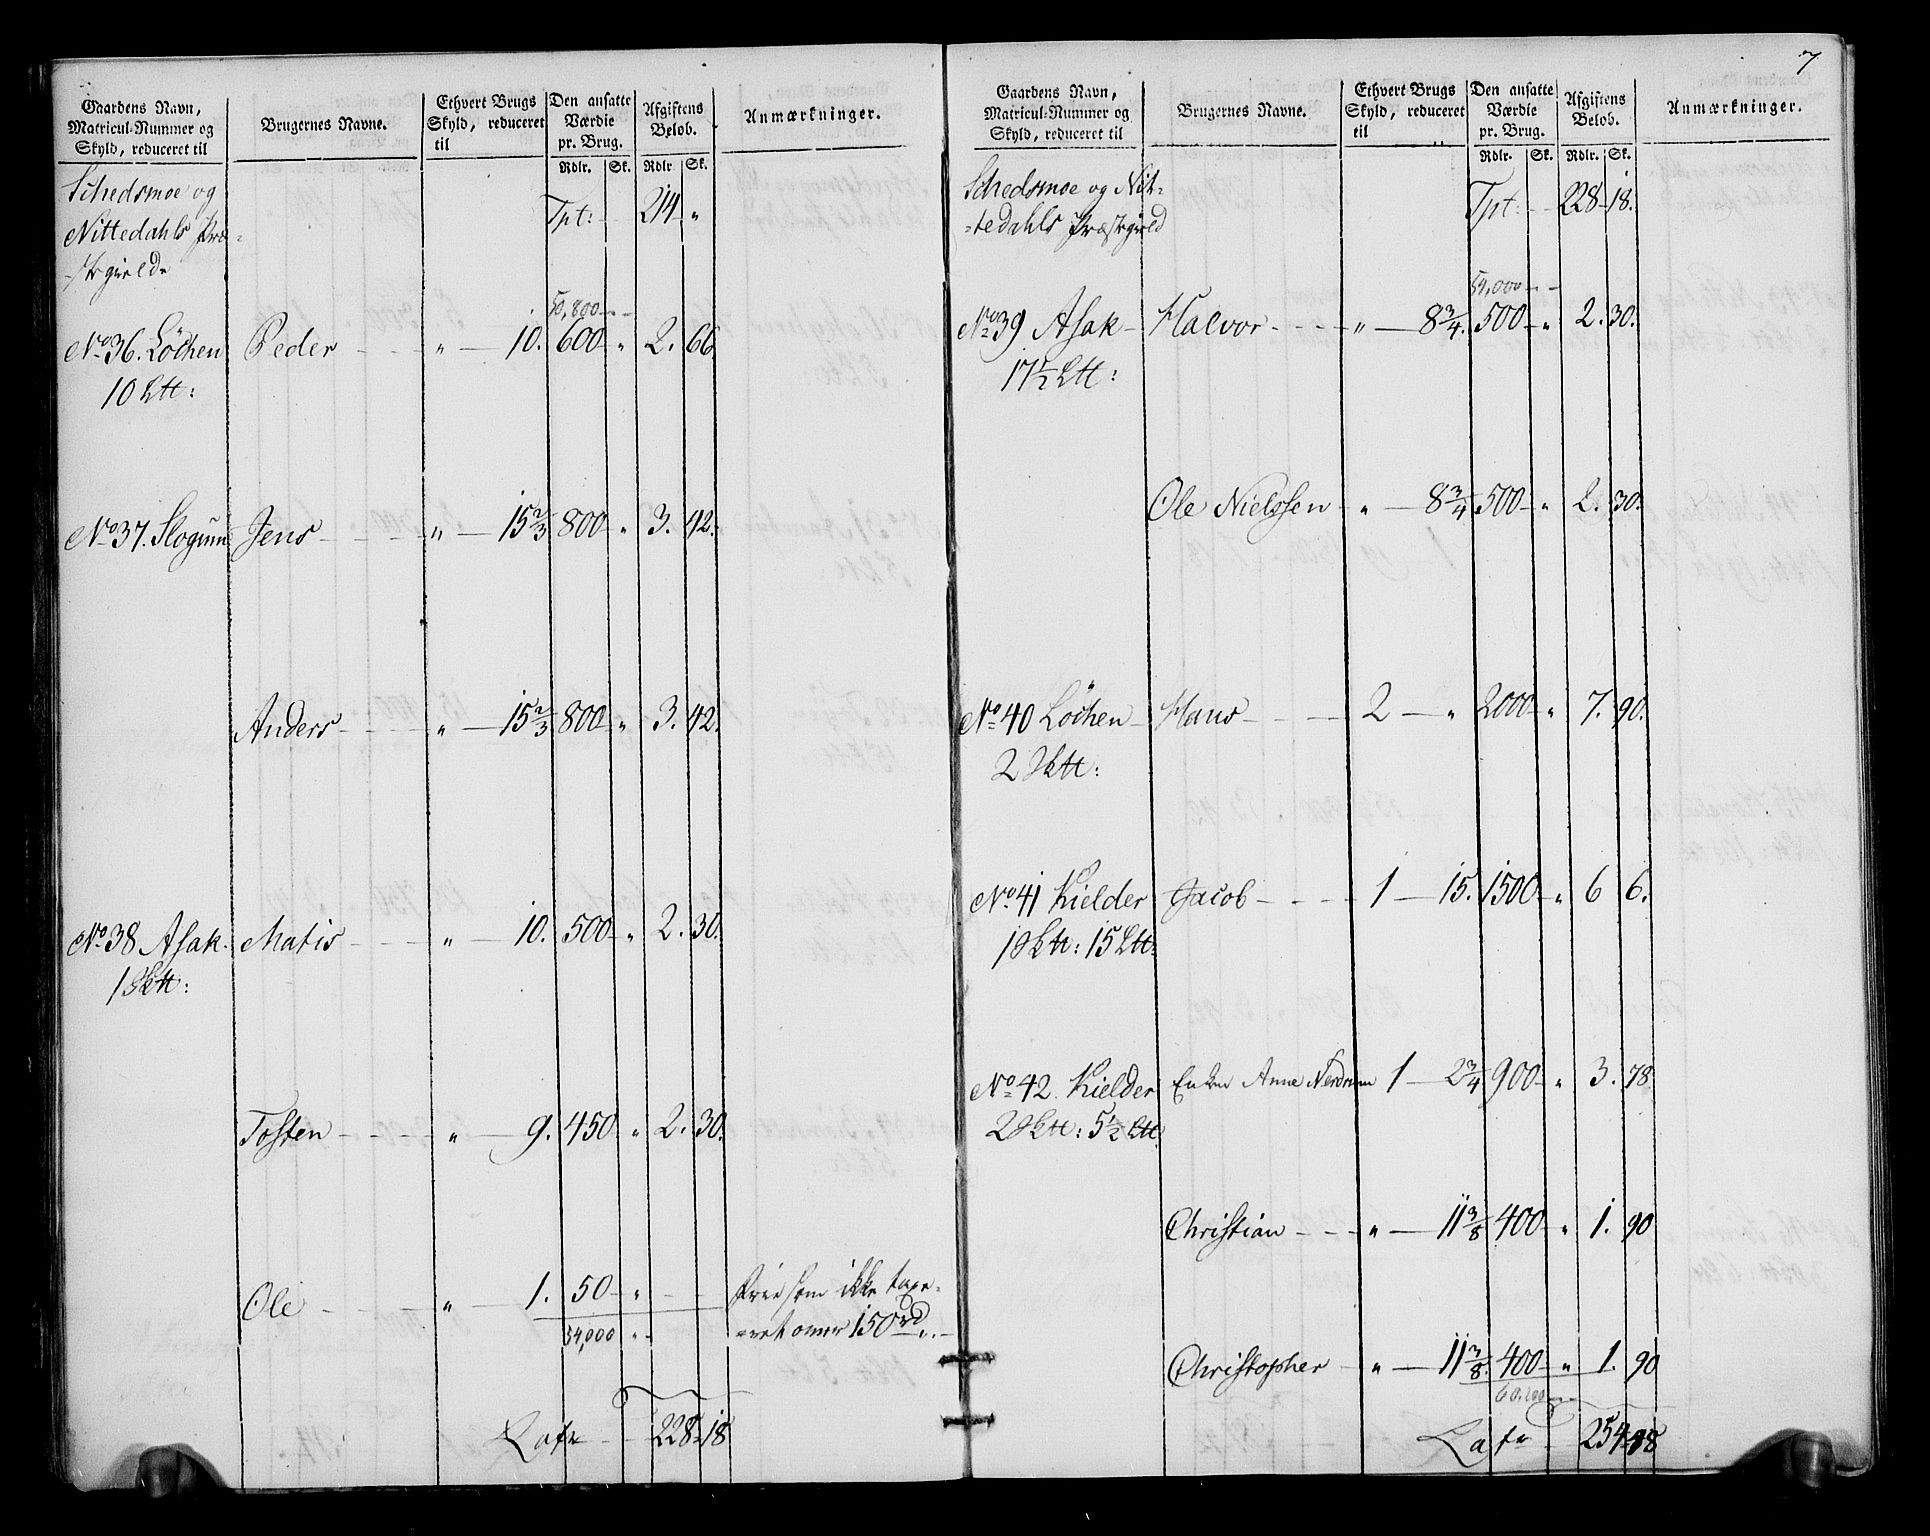 7
Gaardens Navn, Matricul-Nummer og Skyld, reduceret til
Brugernes Navne.
Ethvert Brugs Skyld, reduceret til
Den ansatte Værdie pr. Brug.
Afgiftens Beløb.
Anmærkninger.
Rdlr. Sk. Rdlr. Sk.
Schedsmoe og
Nittedahls Præ-
-stegielde
Tpt: 214 "
50,800
No 36. Løchen Peder " 10. 600 " 2. 66.
10 Ltt:
No 37. Slogum Jens " 15 2/3 800 " 3. 42.
Anders " 15 2/3 800 " 3. 42.
No 38 Asak Matis " 10. 500 " 2. 30.
1 Sktt:
Tosten " 9. 450 " 2. 30.
Ole " 1. 50 " Frie som ikke taxe-
54,000 " -ret over 150 rd
Latr 228 18
Gaardens Navn, Matricul-Nummer og Skyld, reduceret til
Brugernes Navne.
Ethvert Brugs Skyld, reduceret til
Den ansatte Værdie pr. Brug.
Afgiftens Beløb.
Anmærkninger.
Rdlr. Sk. Rdlr. Sk.
Schedsmoe og Nit-
-tedahls Præstegield
Tpt: 228 18.
54,000
No 39 Asak Halvor " 8 3/4. 500 " 2. 30.
17 1/2 Ltt:
Ole Nielssen " 8 3/4 500 " 2. 30.
No 40 Løchen Hans 2 " 2000 " 7. 90.
2 Sktt:
No 41 Kielder Jacob 1 15. 1500 " 6 6.
1 Sktt: 15 Ltt:
No 42. Kielder Enken Anne Nerdrum 1 2 3/4 900 " 3. 78
2 Sktt: 5 1/2 Ltt
Christian " 11 3/8 400 " 1. 90
Christopher " 11 3/8. 400 " 1. 90
60,200
Latr 254 48